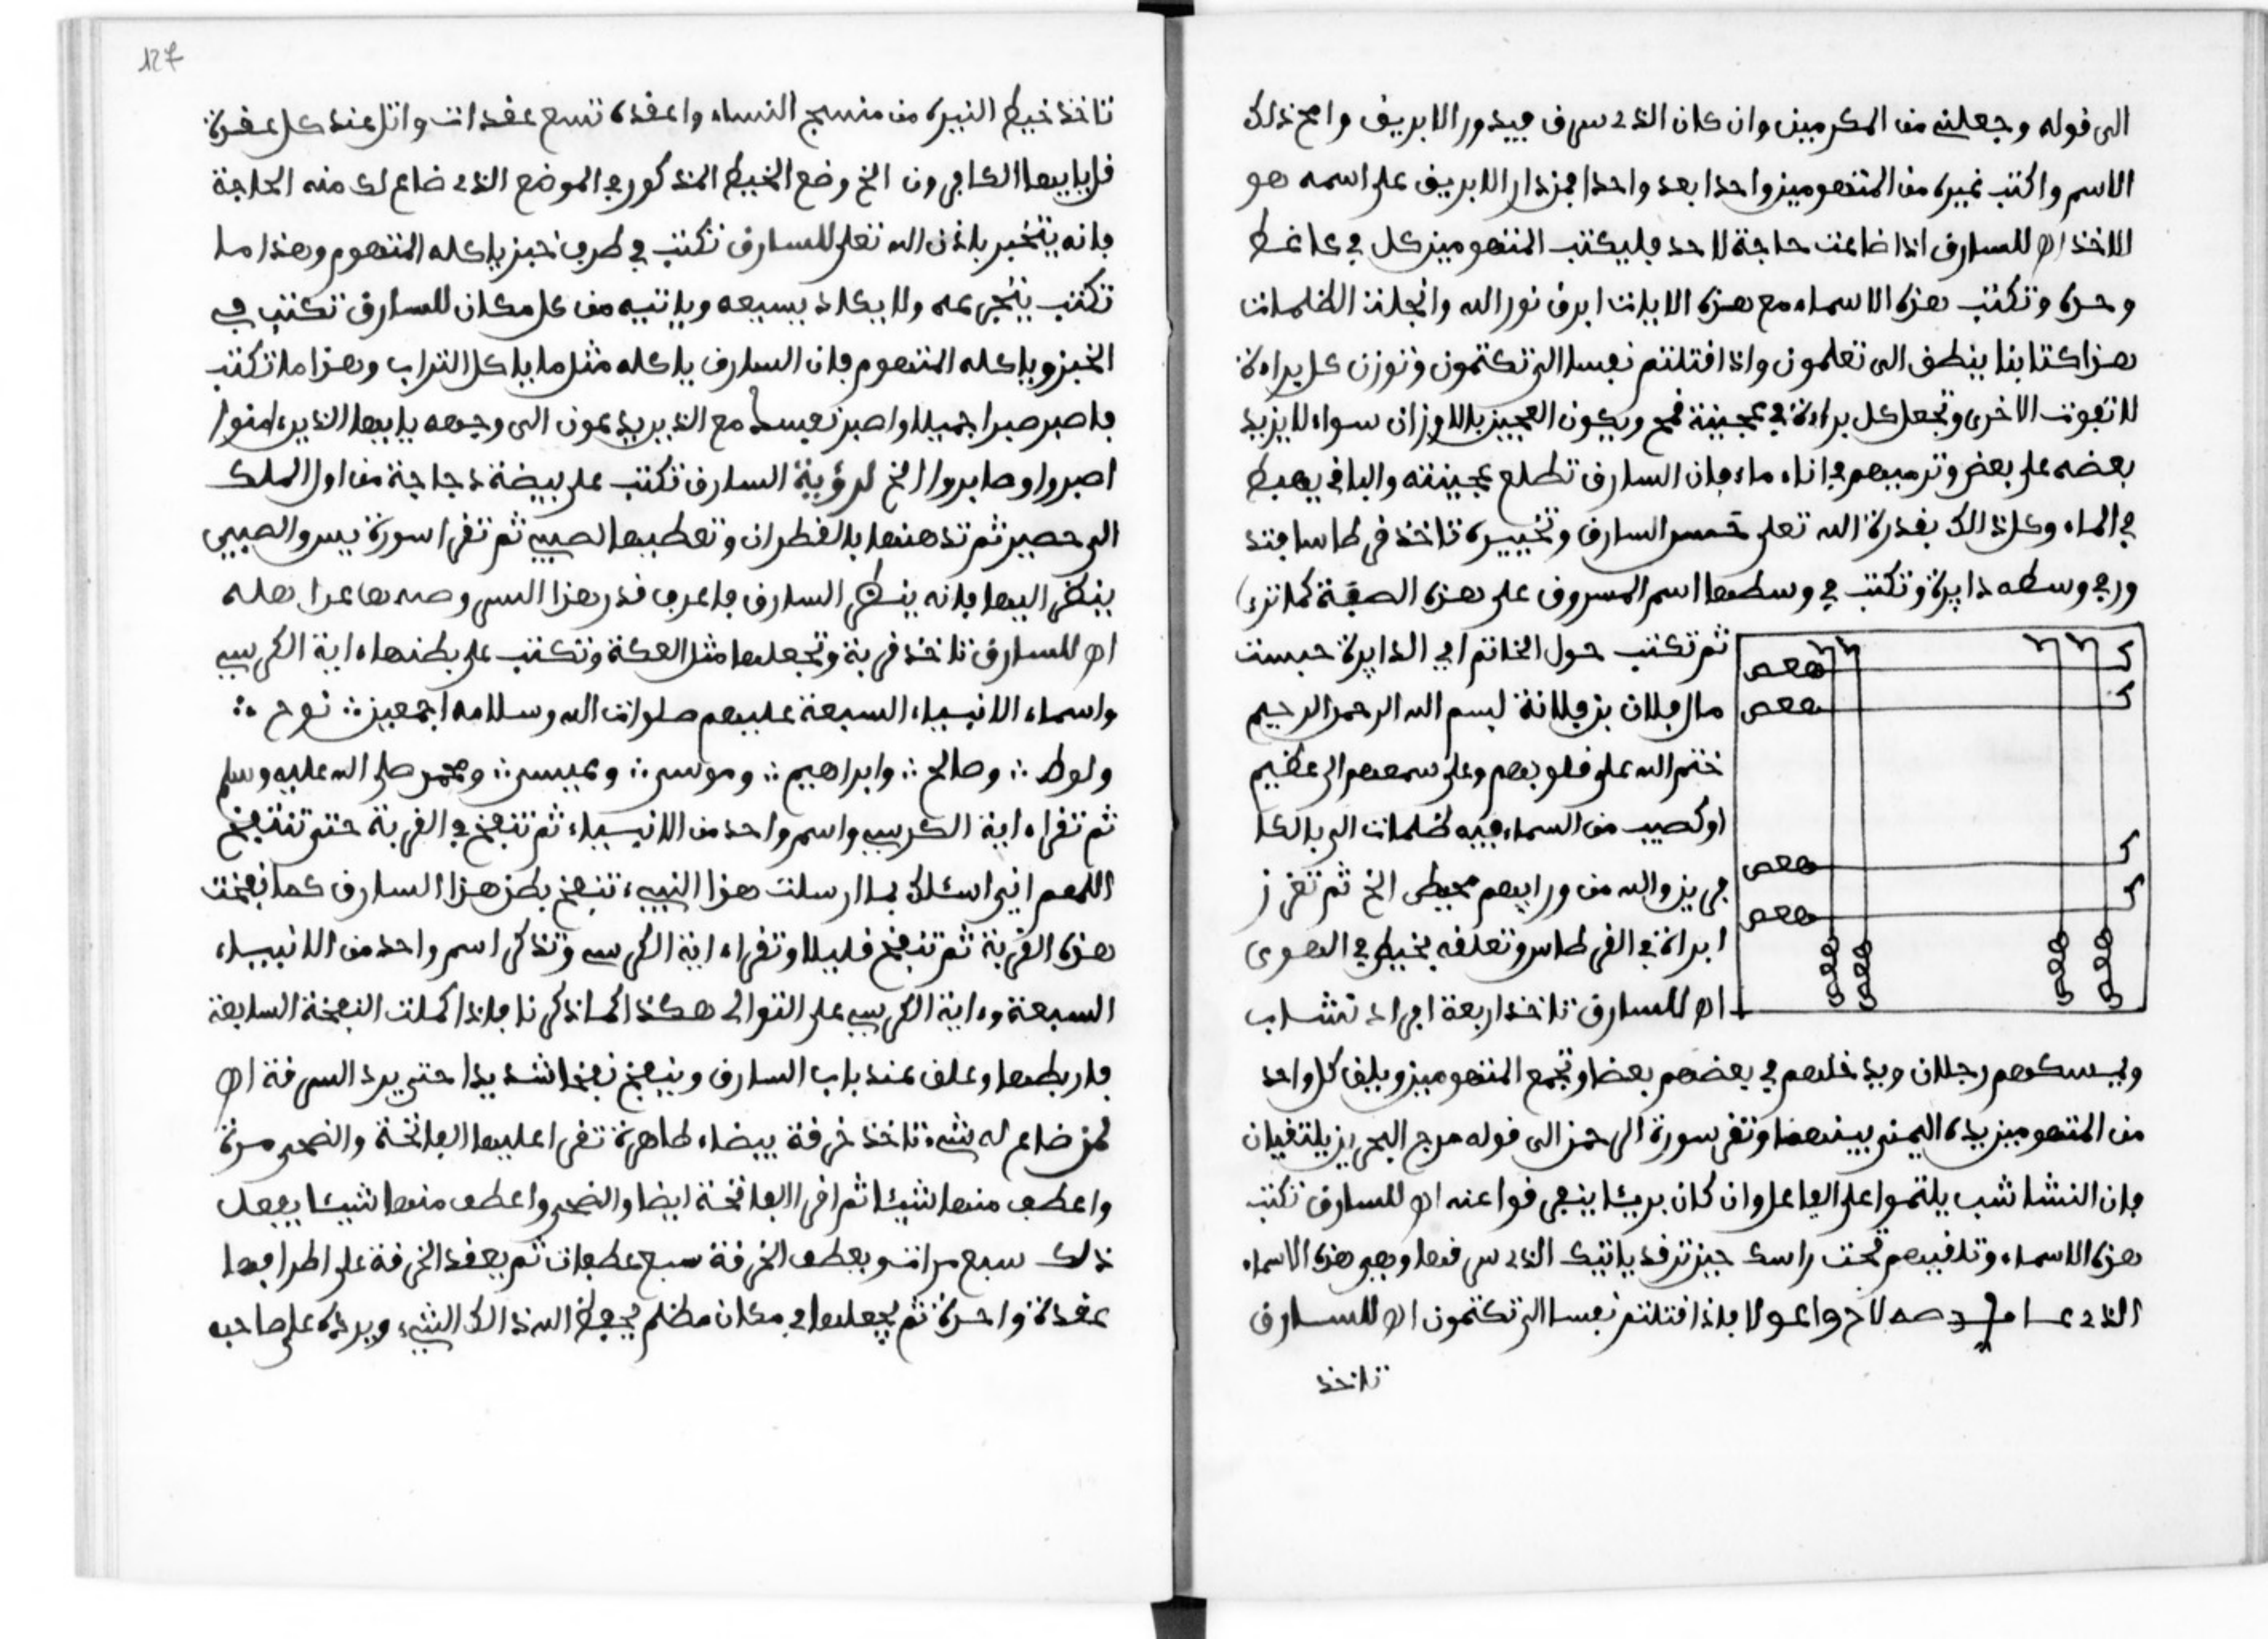 الى قوله وجعلنى من المكرمين وان كان الذى سرق فيدور الابريق وامح ذلك
الاسم واكتب غيره من المتهومين واحدا بعد واحد فمن دار الابريق على اسمه هو
الاخذ اه للسارق اذا ضاعت حاجة لاحد فليكتب المتهومين كل فى كاغط
وحده وتكتب هذه الاسماء مع هذه الايات ابرق نور الله وانجلت الظلمات
هذا كتابنا ينطق الى تعلمون واذ اقتلتم نفسا الى تكتمون وتوزن كل براءة
لا تفوت الاخرى وتجعل كل براءة فى عجينة قمح ويكون العجين بالاوزان سواء لا يزيد
بعضه على بعض وترميهم فى اناء ماء فان السارق تطلع عجينته والباقى يهبط
فى الماء وكل ذالك بقدرة الله تعلى حبس السارق وتحييره تاخذ قرطاسا فتد
ور فى وسطه دايرة وتكتب فى وسطها اسم المسروق على هذه الصفة كما ترى
ثم تكتب حول الخاتم اى الدايرة حبست
مال فلان بن فلانة بسم الله الرحمن الرحيم
ختم الله على قلوبهم وعلى سمعهم الى عظيم
او كصيب من السماء فيه ظلمات الى بالكا
فرين والله من ورايهم محيط الخ ثم تغرز
ابراة فى القرطاس وتعلقه بخيط فى الهوى
اه للسارق تاخذ اربعة افراد نشاب
ك
ك
ك
ك
هعص
هعص
هعص
هعص
هعص
هعص
هعص
هعص
ويمسكوهم رجلان ويدخلهم فى بعضهم بعضا وتجمع المتهومين ويلق كل واحد
من المتهومين يده اليمنى بينهما وتقر سورة الرحمن الى قوله مرج البحرين يلتقيان
فان النشاشب يلتموا على الفاعل وان كان بريئا ينفرقوا عنه اه للسارق تكتب
هذه الاسماء وتلقيهم تحت راسك حين ترقد ياتيك الذى سرقها وهى هذه الاسماء
الذى عسا صه لاح واعولا فاذا قتلتم نفسا الى تكتمون اه للسارق
تاخذ
127
تاخذ خيط النيره من منسج النساء واعقده تسع عقدات واتل عند كل عقدة
قل يايها الكافرون الخ وضع الخيط المذكور فى الموضع الذى ضاع لك منه الحاجة
فانه يتخبر باذن الله تعلى للسارق تكتب فى طرف خبز ياكله المتهوم وهذا ما
تكتب يتجرعه ولا يكاد يسيغه وياتيه من كل مكان للسارق تكتب فى
الخبز وياكله المتهوم فان السارق ياكله مثل ما ياكل التراب وهذا ما تكتب
فاصبر صبرا جميلا واصبر نفسك مع الذين يدعون الى وجهه يايها الذين ءامنوا
اصبروا وصابروا الخ لرؤية السارق تكتب على بيضة دجاجة من اول الملك
الى حصير ثم تدهنها بالقطران وتعطيها لصبي ثم تقرا سورة يس والصبيى
ينظر اليها فانه ينظر السارق فاعرف قدر هذا السر وصنه عن اهله
اه للسارق تاخذ قربة وتجعلها مثل العكة وتكتب على بطنها ءاية الكرسي
واسماء الانبياء السبعة عليهم صلوات الله وسلامه اجمعين نوح
ولوط وصالح وابراهيم وموسى وعيسى ومحمد صلى الله عليه وسلم
ثم تقرا ءاية الكرسي واسم واحد من الانبياء ثم تنفخ فى القربة حتى تنتفخ
اللهم انى اسئلك بما ارسلت هذا النبيء تنفخ بطن هذا السارق كما نفخت
هذه القربة ثم تنفخ قليلا وتقرا ءاية الكرسي وتذكر اسم واحد من الانبياء
السبعة وءاية الكرسي على التوالى هكذا كما ذكرنا فاذا كملت النفخة السابعة
فاربطها وعلق عند باب السارق وينفخ نفخا شديدا حتى يرد السرقة اه
لمن ضاع له شىء تاخذ خرقة بيضاء طاهرة تقرا عليها الفاتحة والضحى مرة
واعطف منها شيئا ثم اقرا الفاتحة ايضا والضحى واعطف منها شيئا يفعل
ذلك سبع مرات ويعطف الخرقة سبع عطفات ثم يعقد الخرقة على اطرافها
عقدة واحدة ثم يجعلها فى مكان مظلم يحفظ الله ذالك الشىء ويرده على صاحبه